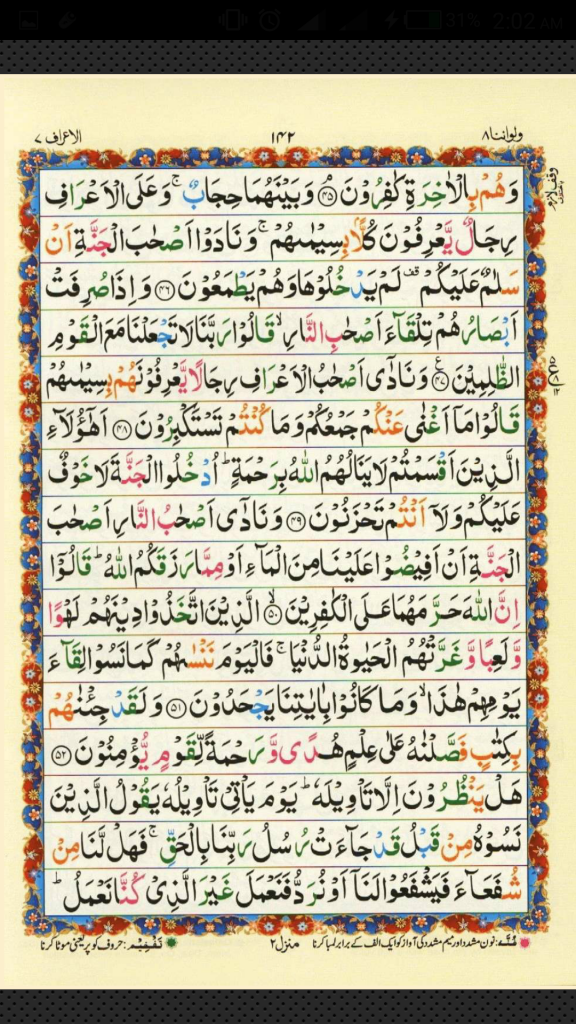 31% 2:02 AM
ولواننا ٨ ١٤٢ الاعراف ٧
وَهُمۡ بِالۡاٰخِرَةِ كٰفِرُوۡنَ ﴿۴۵﴾ وَبَيۡنَهُمَا حِجَابٌ ۚ وَعَلَى الۡاَعۡرَافِ
رِجَالٌ يَّعۡرِفُوۡنَ كُلًّاۢ بِسِيۡمٰٮهُمۡ ۚ وَنَادَوۡا اَصۡحٰبَ الۡجَـنَّةِ اَنۡ
سَلٰمٌ عَلَيۡكُمۡ ࣞ لَمۡ يَدۡخُلُوۡهَا وَهُمۡ يَطۡمَعُوۡنَ ﴿۴۶﴾ وَاِذَا صُرِفَتۡ
اَبۡصَارُهُمۡ تِلۡقَآءَ اَصۡحٰبِ النَّارِ ۙ قَالُوۡا رَبَّنَا لَا تَجۡعَلۡنَا مَعَ الۡقَوۡمِ
الظّٰلِمِيۡنَ ﴿۴۷﴾ وَنَادٰٓى اَصۡحٰبُ الۡاَعۡرَافِ رِجَالًا يَّعۡرِفُوۡنَهُمۡ بِسِيۡمٰٮهُمۡ
قَالُوۡا مَاۤ اَغۡنٰى عَنۡكُمۡ جَمۡعُكُمۡ وَمَا كُنۡتُمۡ تَسۡتَكۡبِرُوۡنَ ﴿۴۸﴾ اَهٰٓؤُلَاۤءِ
الَّذِيۡنَ اَقۡسَمۡتُمۡ لَا يَنَالُهُمُ اللّٰهُ بِرَحۡمَةٍ ؕ اُدۡخُلُوا الۡجَـنَّةَ لَا خَوۡفٌ
عَلَيۡكُمۡ وَلَاۤ اَنۡتُمۡ تَحۡزَنُوۡنَ ﴿۴۹﴾ وَنَادٰٓى اَصۡحٰبُ النَّارِ اَصۡحٰبَ
الۡجَـنَّةِ اَنۡ اَفِيۡضُوۡا عَلَيۡنَا مِنَ الۡمَآءِ اَوۡ مِمَّا رَزَقَكُمُ اللّٰهُ ؕ قَالُوۡۤا
اِنَّ اللّٰهَ حَرَّمَهُمَا عَلَى الۡكٰفِرِيۡنَ ۙ ﴿۵۰﴾ الَّذِيۡنَ اتَّخَذُوۡا دِيۡنَهُمۡ لَهۡوًا
وَّلَعِبًا وَّغَرَّتۡهُمُ الۡحَيٰوةُ الدُّنۡيَا ۚ فَالۡيَوۡمَ نَنۡسٰٮهُمۡ كَمَا نَسُوۡا لِقَآءَ
يَوۡمِهِمۡ هٰذَا ۙ وَمَا كَانُوۡا بِاٰيٰتِنَا يَجۡحَدُوۡنَ ﴿۵۱﴾ وَلَقَدۡ جِئۡنٰهُمۡ
بِكِتٰبٍ فَصَّلۡنٰهُ عَلٰى عِلۡمٍ هُدًى وَّرَحۡمَةً لِّقَوۡمٍ يُّؤۡمِنُوۡنَ ﴿۵۲﴾
هَلۡ يَنۡظُرُوۡنَ اِلَّا تَاۡوِيۡلَهٗ ؕ يَوۡمَ يَاۡتِىۡ تَاۡوِيۡلُهٗ يَقُوۡلُ الَّذِيۡنَ
نَسُوۡهُ مِنۡ قَبۡلُ قَدۡ جَآءَتۡ رُسُلُ رَبِّنَا بِالۡحَقِّ ۚ فَهَلْ لَّنَا مِنۡ
شُفَعَآءَ فَيَشۡفَعُوۡا لَنَاۤ اَوۡ نُرَدُّ فَنَعۡمَلَ غَيۡرَ الَّذِىۡ كُنَّا نَعۡمَلُ ؕ
غُنّہ: نون مشدد اور میم مشدد کی آواز کو ایک الف کے برابر لمبا کرنا منزل ٢ تَفْخِیْم: حروف کو پُر یعنی موٹا کرنا